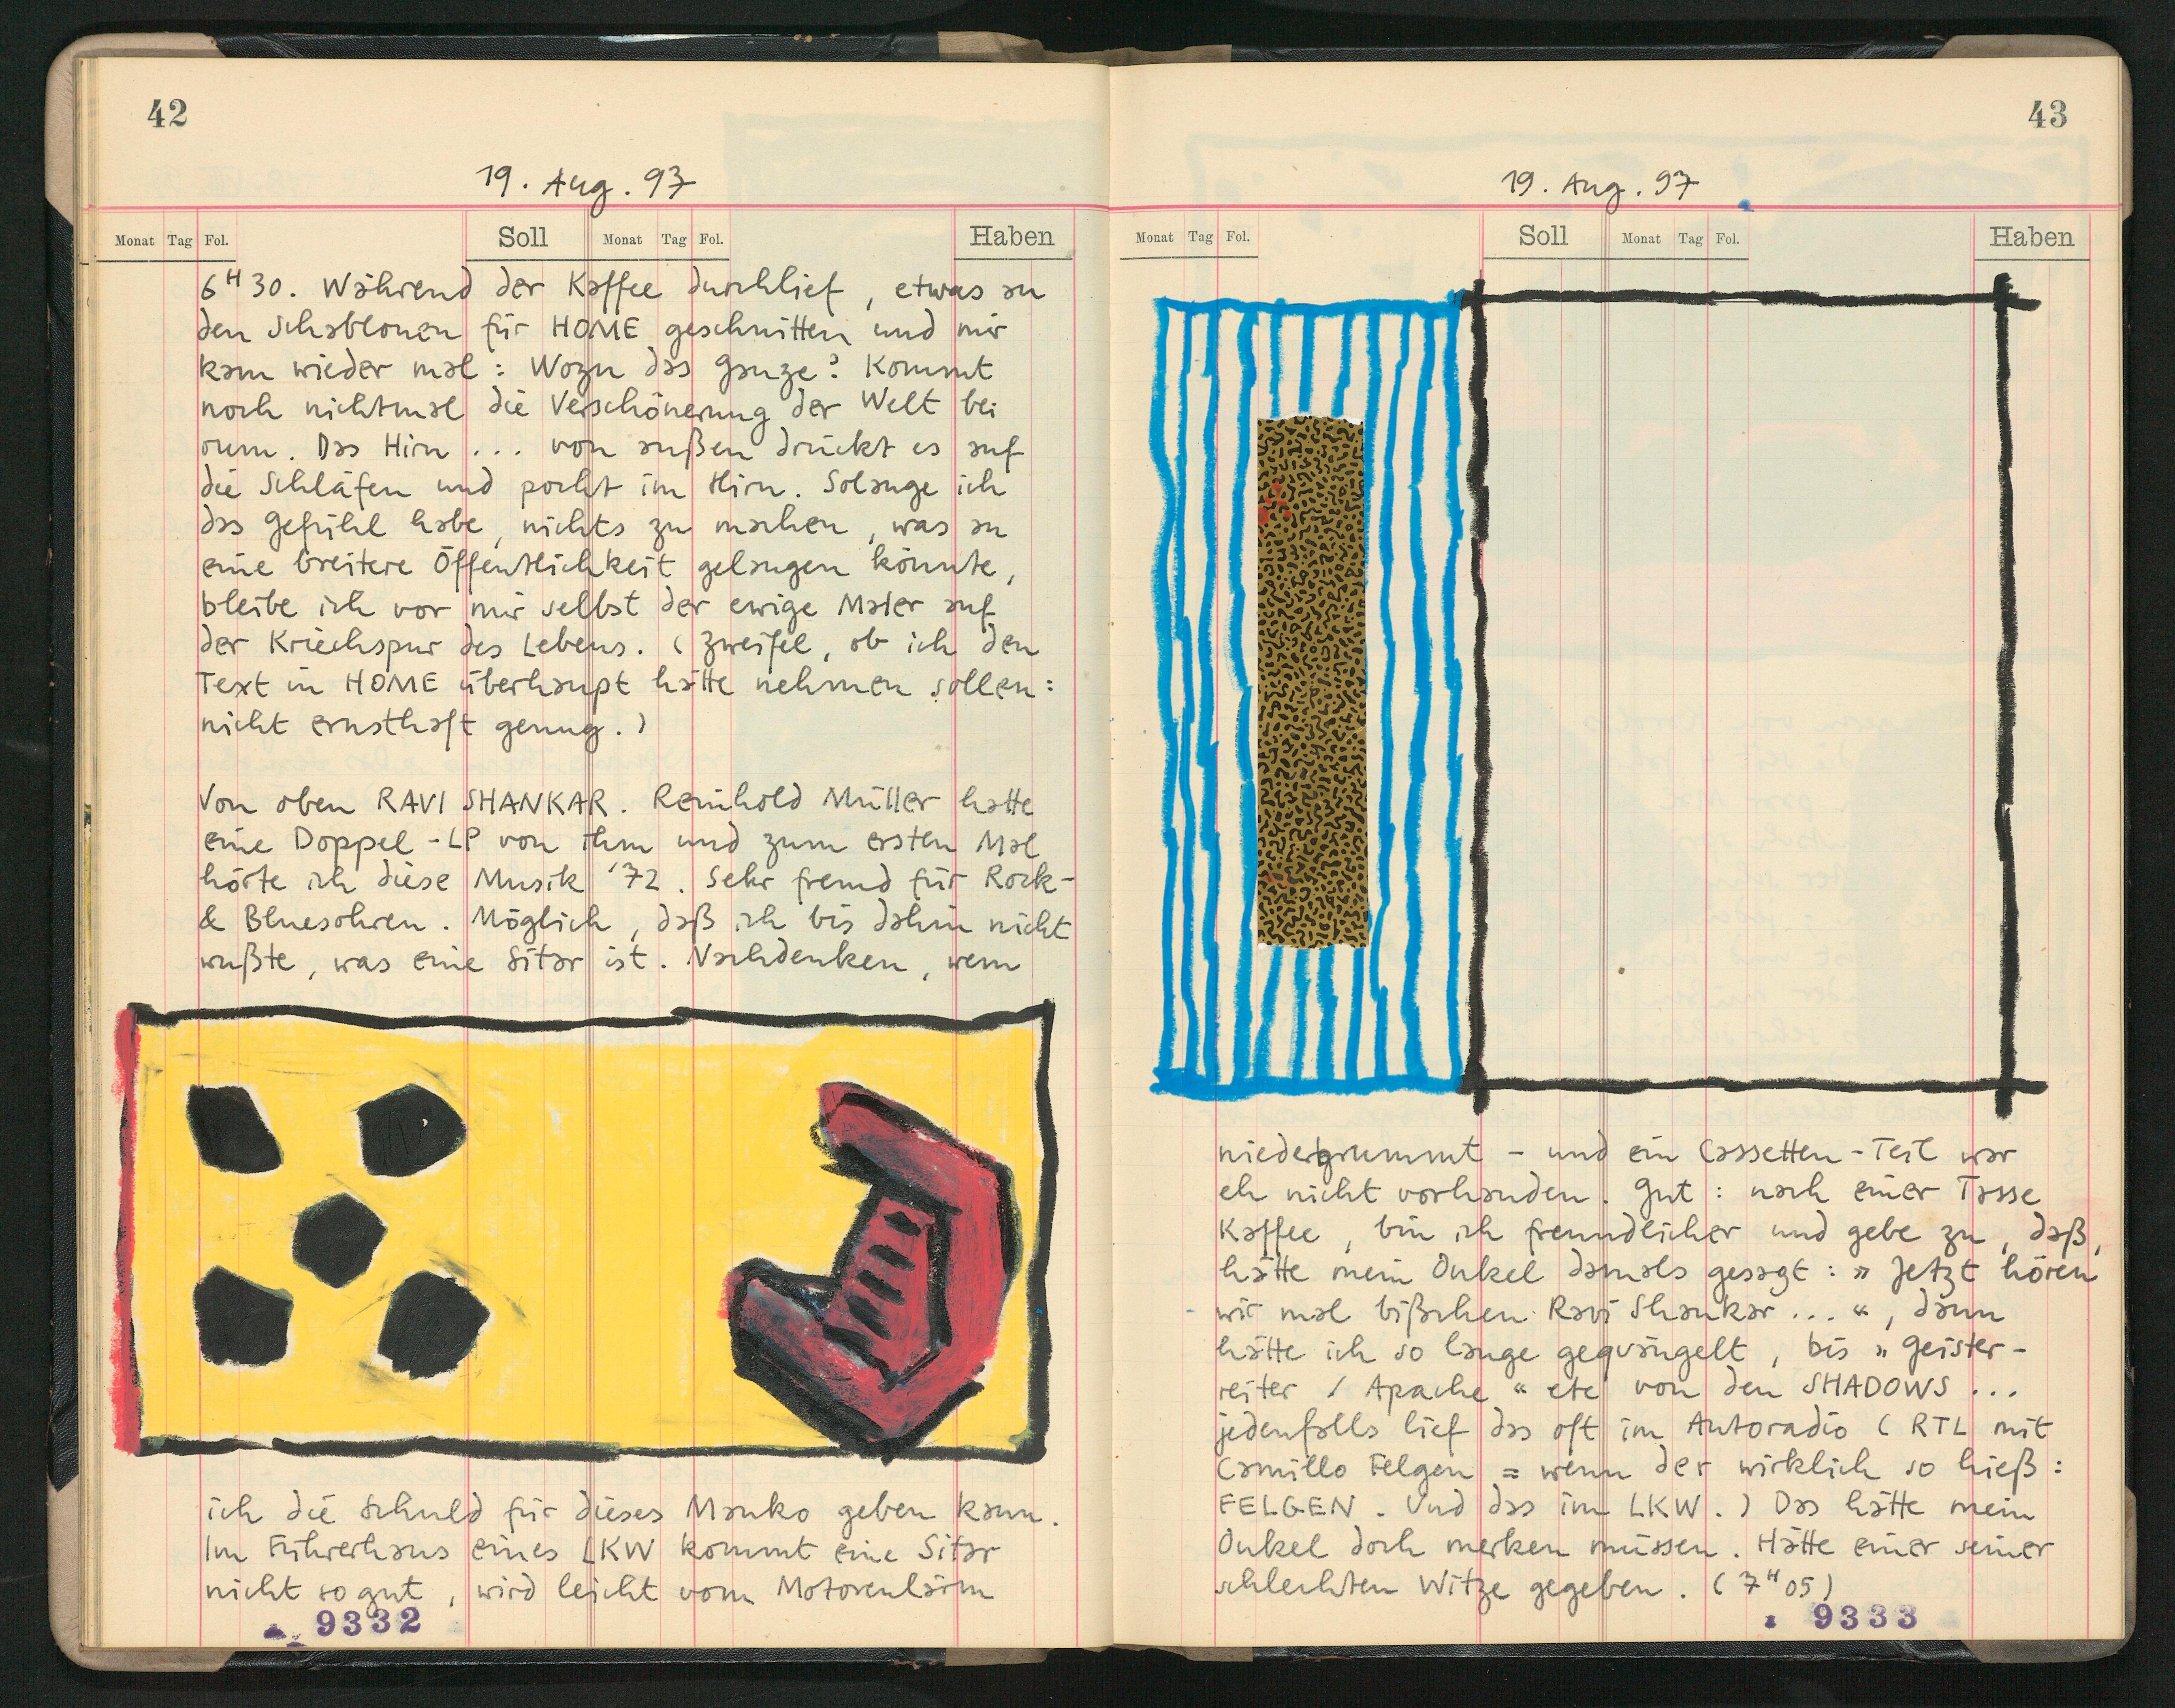 42
19. Aug. 97
Monat Tag Fol. Soll Monat Tag Fol. Haben
6H30. Während der Kaffee durchlief, etwas an
den Schablonen für HOME geschnitten und mir
kam wieder mal: Wozu das Ganze? Kommt
noch nichtmal die Verschönerung der Welt bei
rum. Das Hirn ... von außen drückt es auf
die Schläfen und pocht im Hirn. Solange ich
das Gefühl habe, nichts zu machen, was an
eine breitere Öffentlichkeit gelangen könnte,
bleibe ich vor mir selbst der ewige Maler auf
der Kriechspur des Lebens. (Zweifel, ob ich den
Text in HOME überhaupt hätte nehmen sollen:
nicht ernsthaft genug.)
Von oben RAVI SHANKAR. Reinhold Müller hatte
eine Doppel-LP von ihm und zum ersten Mal
hörte ich diese Musik '72. Sehr fremd für Rock-
& Bluesohren. Möglich, daß ich bis dahin nicht
wußte, was eine Sitar ist. Nachdenken, wem
ich die Schuld für dieses Manko geben kann.
Im Führerhaus eines LKW kommt eine Sitar
nicht so gut, wird leicht vom Motorenlärm
9332
43
19. Aug. 97
Monat Tag Fol. Soll Monat Tag Fol. Haben
niedergrummt – und ein Cassetten-Teil war
eh nicht vorhanden. Gut: nach einer Tasse
Kaffee, bin ich freundlicher und gebe zu, daß,
hätte mein Onkel damals gesagt: „Jetzt hören
wir mal bißchen Ravi Shankar ...“, dann
hätte ich so lange gequängelt, bis „Geister-
reiter / Apache“ etc von den SHADOWS ...
jedenfalls lief das oft im Autoradio (RTL mit
Camillo Felgen = wenn der wirklich so hieß:
FELGEN. Und das im LKW.) Das hätte mein
Onkel doch merken müssen. Hätte einer seiner
schlechten Witze gegeben. (7H05)
9333